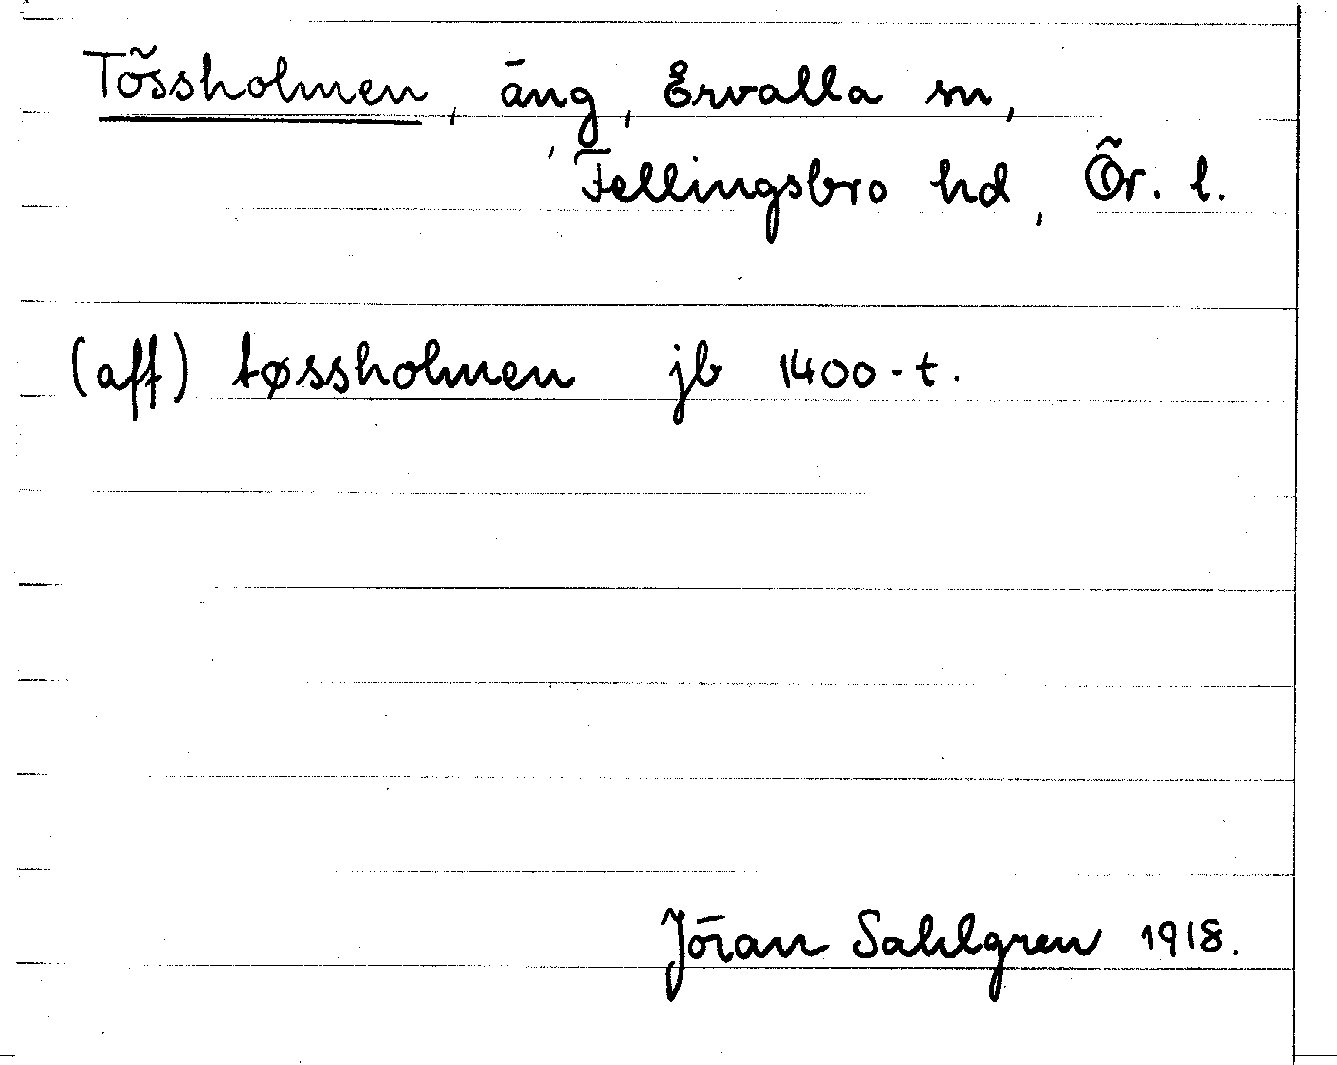 Tössholmen, äng, Ervalla sn,
Fellingsbro hd, Ör. l.
(aff) tøssholmen jb 1400-t.
Jöran Sahlgren 1918.